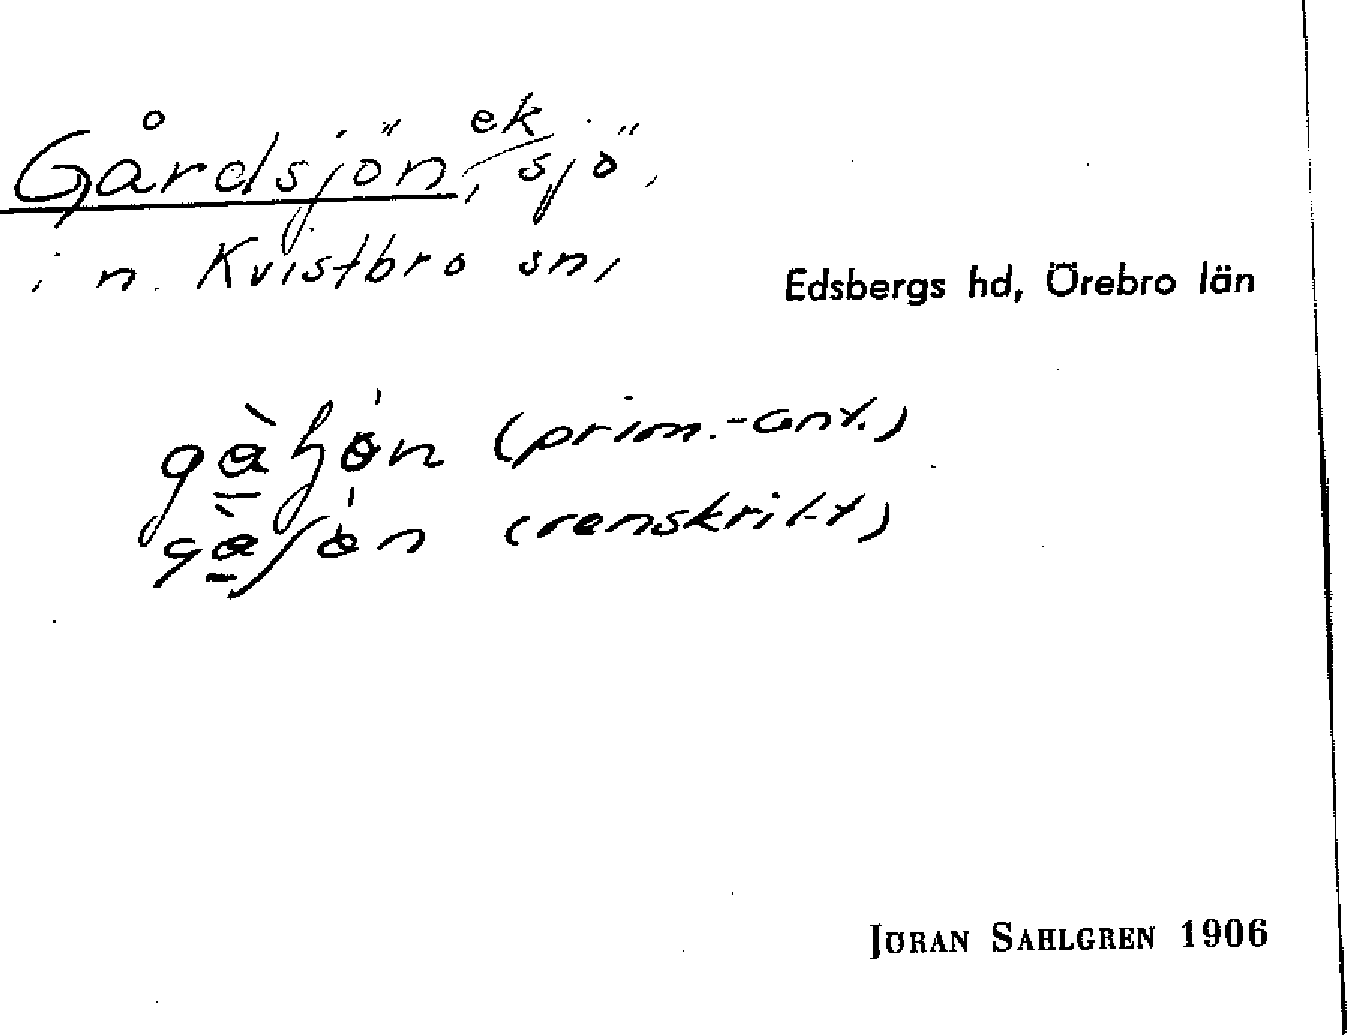 Gårdsjön, ek sjö,
i n. Kvistbro sn,
Edsbergs hd, Örebro län
(prim.-ant.)
(renskrift)
JÖRAN SAHLGREN 1906